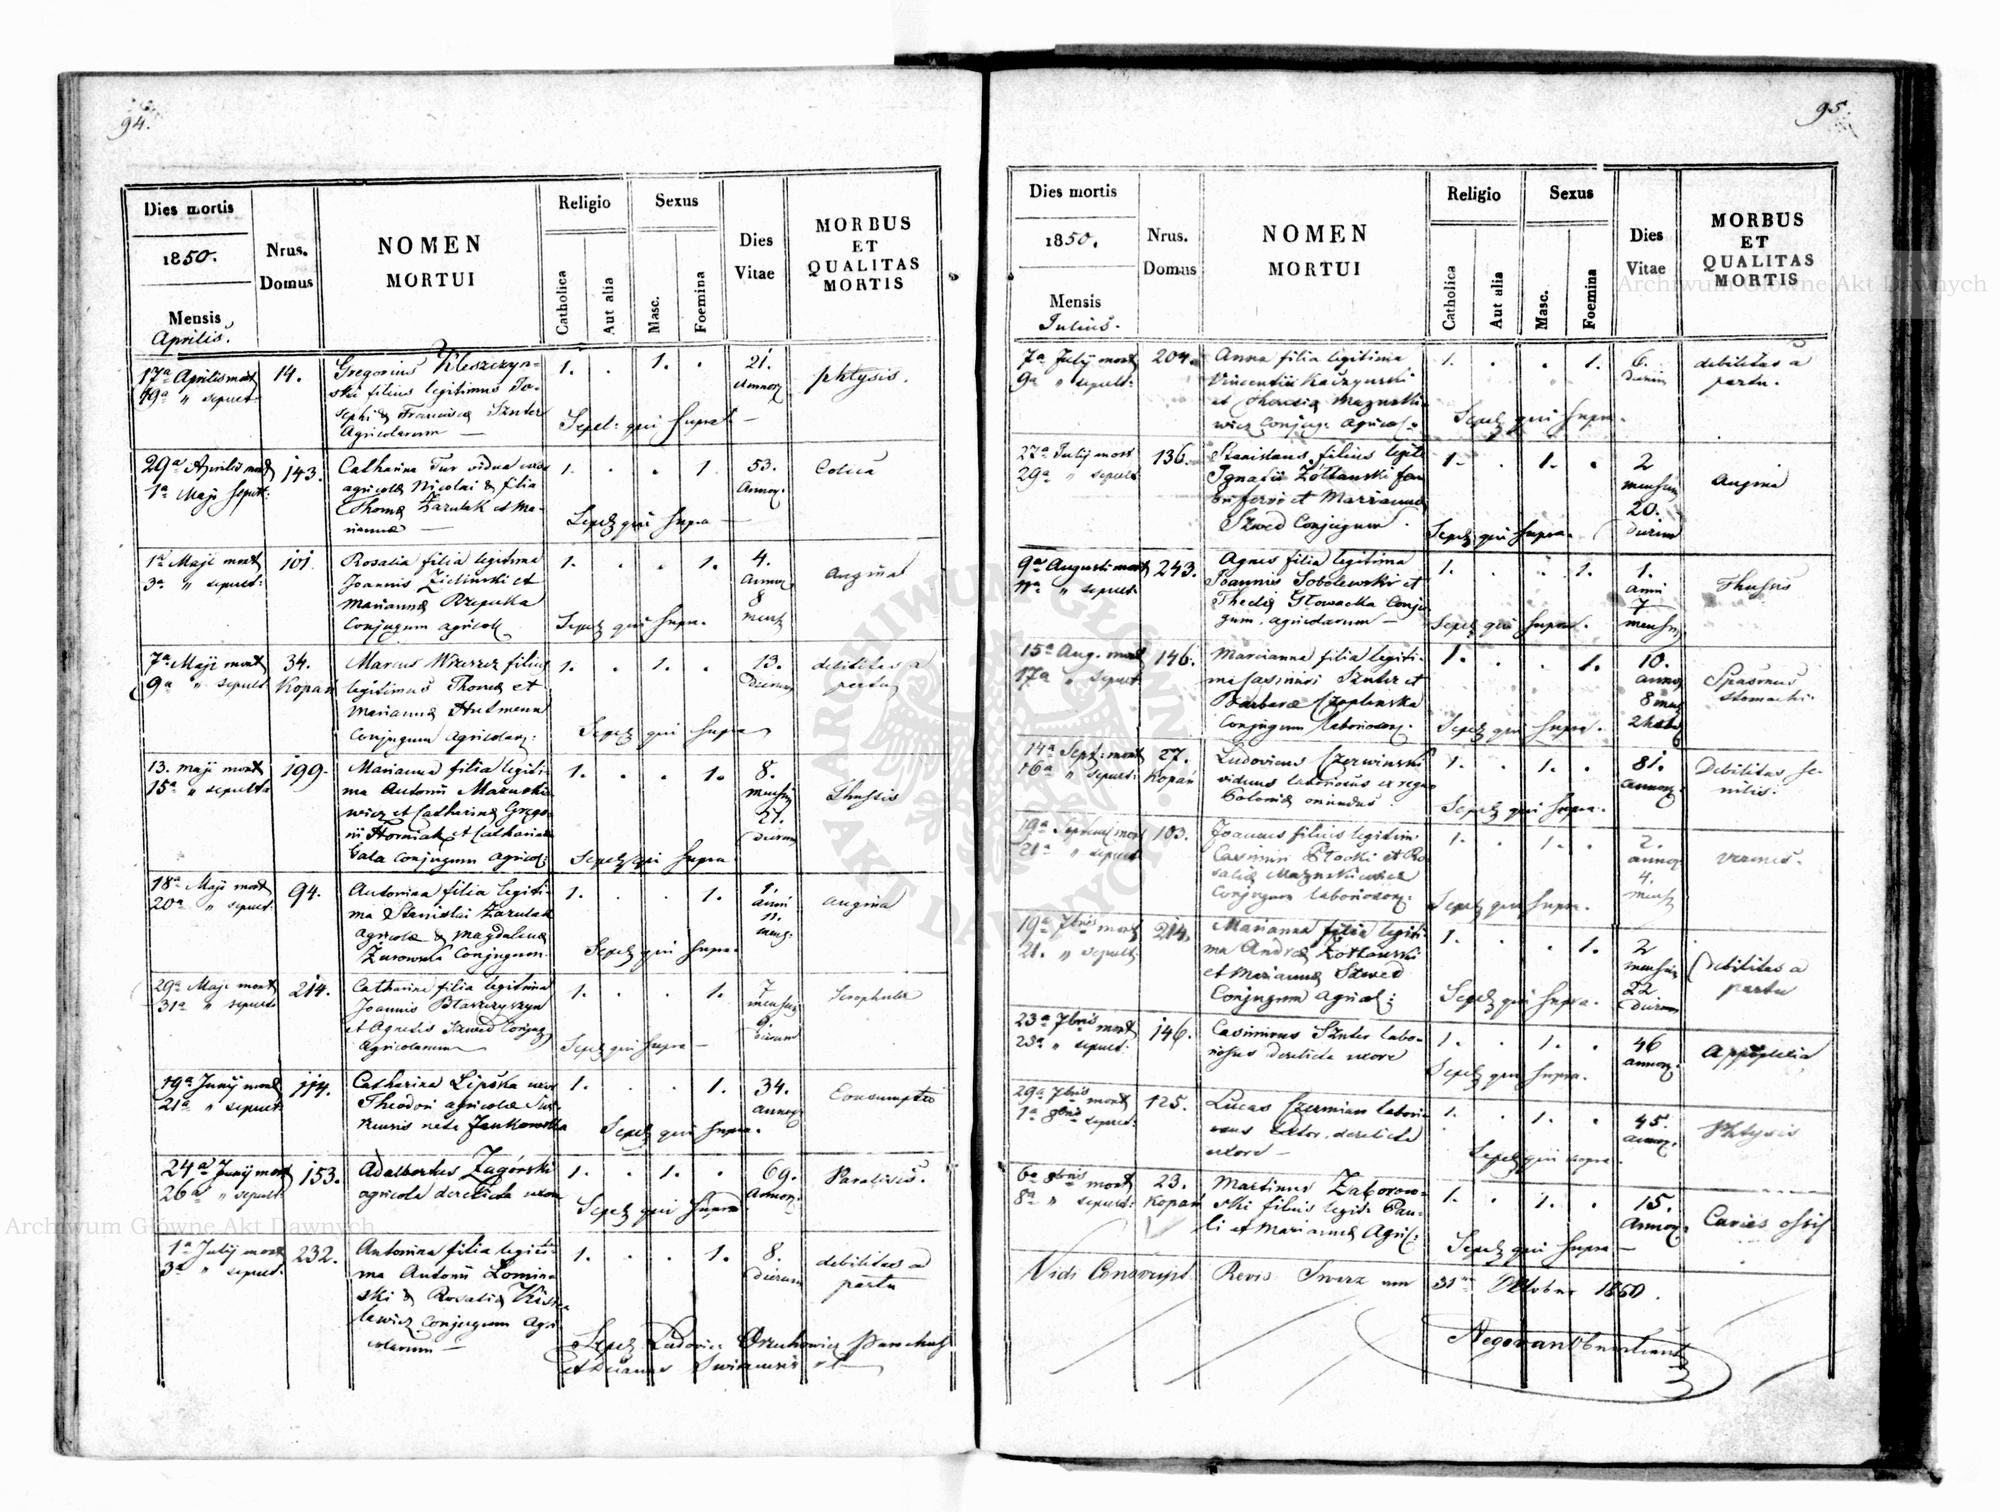 94.
Dies mortis
1850.
Mensis
Aprilis.
Nrus.
Domus
NOMEN
MORTUI
Religio
Catholica
Aut alia
Sexus
Masc.
Foemina
Dies
Vitae
MORBUS
ET
QUALITAS
MORTIS
17a Aprilis mort
19a " sepult:
14.
Gregorius Kleszczyn-
ski filius legitimus Jo-
sephi & Francisca Sznter
Agricolarum —
1. . 1. .
21.
Annor
phtysis.
Sepel: qui supra —
29a Aprilis mort
1a Maji sepult:
143.
Catharina Tur vidua
agricolae Nicolai & filia
Thomae Zarulak et Ma-
rianna —
1. . . 1.
53.
Annor.
Colica
Sepel qui supra —
1a Maji mort
3a " sepult:
101.
Rosalia filia legitima
Joannis Zielinski et
Mariannae Rzepecka
Conjugum agricol
1. . . 1.
4.
Annor
8
mens
angina
Sepel qui supra.
7a Maji mort
9a " sepult
34.
Kopań
Marcus filius
legitimus Thomae et
Mariannae Hutmann
Conjugum agricolar:
1. . 1. .
13.
Dierum
debilitas a
partu
Sepel qui supra
13. Maji mort
15a " sepulta
199.
Marianna filia legiti-
ma Antonii Mazurkie-
wicz et Catharina Grego-
rii Horniak et Catharina
Gala conjugum agricol:
1. . . 1.
8.
mensium
21.
dierum
Thussis
Sepel qui supra
18a Maji mort
20a " sepult:
94.
Antonina filia legiti-
ma Stanislai Zarulak
agricolae & Magdalena
Żurowski Conjugum
1. . . 1.
1.
anni
11.
mens:
angina
Sepel qui supra.
29a Maji mort
31a " sepult:
214.
Catharina filia legitima
Joannis Blaszczyszyn
et Agnetis Szwed Conjug
Agricolarum
1. . . 1.
7
mensium
9.
dierum
Scrophulae
Sepel qui supra —
19a Junij mort
21a " sepult:
114.
Catharina Lipska uxor
Theodori agricolae
nata Jankowska
1. . . 1.
34.
annor
Consumptio
Sepel qui supra.
24a Junij mort
26a " sepult:
153.
Adalbertus Zagórski
agricola derelicta uxore
1. . 1. .
69.
Annor.
Paralisis.
Sepel qui supra
1a Julij mort
3a " sepult:
232.
Antonina filia legiti-
ma Antonii Lomin-
ski & Rosalia Kisie
lewicz Conjugum Agri-
colarum —
1. . . 1.
8.
Dierum
debilitas a
partu
Sepel Ludovicus Parochus
95.
Dies mortis
1850.
Mensis
Julius.
Nrus.
Domus
NOMEN
MORTUI
Religio
Catholica
Aut alia
Sexus
Masc.
Foemina
Dies
Vitae
MORBUS
ET
QUALITAS
MORTIS
7a Julij mort
9a " sepult:
204.
Anna filia legitima
Vincentii Kaczynski
et Theresia Mazurkie-
wicz Conjug: agricol:
1. . . 1.
6.
Dierum
debilitas a
partu.
Sepel qui supra.
27a Julij mort
29a " sepult
136.
Stanislaus filius legit
Ignatii Żółtanski
et Marianna
Szwed Conjugum.
1. . 1. .
2
mensium
20.
Dierum
angina
Sepel qui supra.
9a Augusti mort
11a " sepult:
243.
Agnes filia legitima
Joannis Sobolewski et
Thecla Głowacka Conju-
gum agricolarum —
1. . . 1.
1.
anni
7
mensium
Thussis
Sepel qui supra.
15a Aug. mort
17a " sepult
146.
Marianna filia legiti-
ma Casimiri Sznter et
Barbarae Czaplinska
Conjugum laborioser.
1. . . 1.
10.
annor
8 mens
Spasmus
stomachi.
Sepel qui supra.
14a Sept: mort
16a " sepult:
27.
Kopań
Ludovicus Czerwinski
viduus laboriosus ex regno
Poloniae oriundus
1. . 1. .
81.
annor.
Debilitas se-
nilis.
Sepel qui supra.
19a Septem mort
21a " sepult
103.
Joannes filius legitim
Casimiri Płocki et Ro
salia Mazurkiewicz
Conjugum laborioser.
1. . 1. .
2.
annor
4.
mens
vermes.
Sepel qui supra.
19a 7bris mort
21. " sepult:
214.
Marianna filia legiti-
ma Andreae Żółtanski
et Marianna Szwed
Conjugum Agricol:
1. . . 1.
2
mensium
22
Dierum
Debilitas a
partu
Sepel qui supra.
23a 7bris mort
25a " sepult:
146.
Casimirus Sznter labo-
riosus derelicta uxore
1. . 1. .
46
annor.
Appoplexia
Sepel qui supra.
29a 7bris mort
1a 8bris sepult:
125.
Lucas Czermian labori-
osus derelicta
uxore —
1. . 1. .
45.
annor.
Phtysis
Sepel qui supra
6a 8bris mort
8a " sepult:
23.
Kopań
Martinus Zaborow-
ski filius legit: Pau-
li et Marianna Agric:
1. . 1. .
15.
Annor.
Caries ossis
Sepel qui supra —
Vidi Conscript. Revis am 31ten Oktober 1850.
Archiwum Główne Akt Dawnych
Archiwum Główne Akt Dawnych
ARCHIWUM GŁÓWNE AKT DAWNYCH